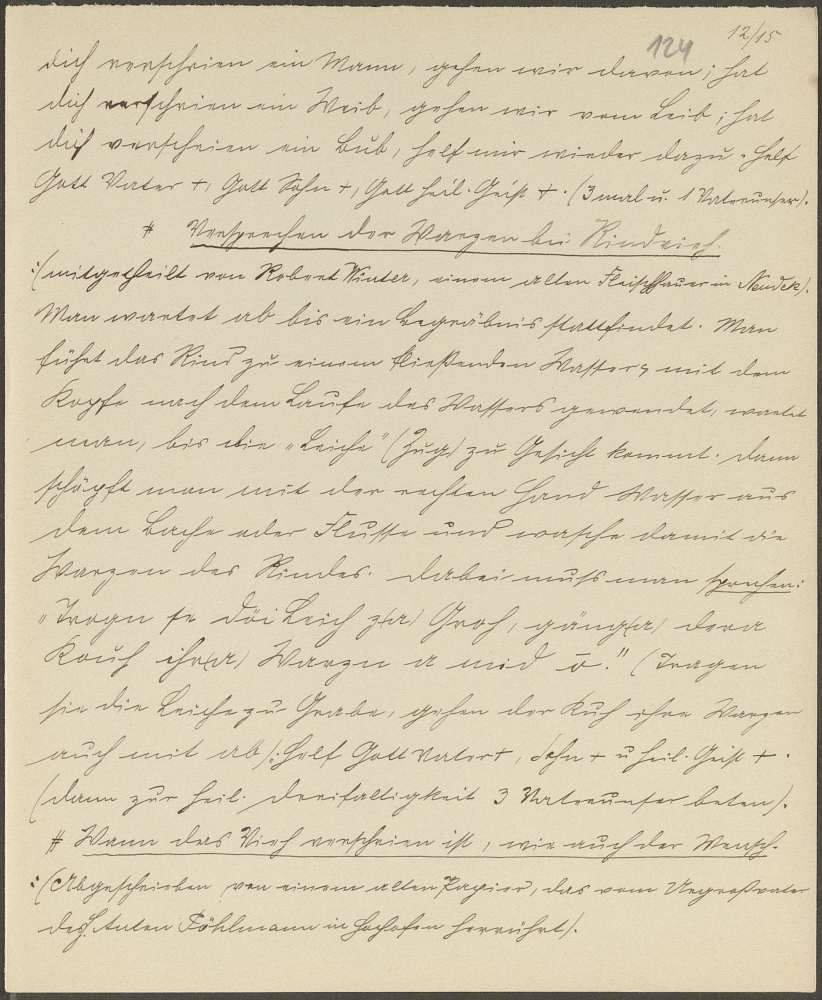 124 12/15
dich verschrien ein Mann, gehen wir davon; hat
dich verschrien ein Weib, gehen wir vom Leib; hat
dich verschrien ein Bub, helf mir wieder dazu. Helf
Gott Vater +, Gott Sohn +, Gott heil. Geist +. (3 mal u. 1 Vaterunser).
# Versprechen der Warzen bei Rindvieh.
:(mitgetheilt von Robert Winter, einem alten Fleischhauer in Neudek).
Man wartet ab bis ein Begräbnis stattfindet. Man
führt das Rind zu einem fließenden Wasser, mit dem
Kopfe nach dem Laufe des Wassers gewendet, wartet
man, bis die „Leiche" (Zug) zu Gesicht kommt. Dann
schöpft man mit der rechten Hand Wasser aus
dem Bache oder Flusse und wasche damit die
Warzen des Rindes. Dabei muß man sprechen:
„Trogn se döi Leich z(a) Groh, gäng(a) dera
Kouh ihr(a) Warzn a mid o." (Tragen
sie die Leiche zu Grabe, gehen der Kuh ihre Warzen
auch mit ab): Helf Gott Vater +, Sohn + u. heil. Geist +.
(dann zur heil. Dreifaltigkeit 3 Vaterunser beten).
# Wann das Vieh verschrien ist, wie auch der Mensch.
:(Abgeschrieben von einem alten Papier, das vom Urgroßvater
des Anton Pöhlmann in Hochofen herrührt).